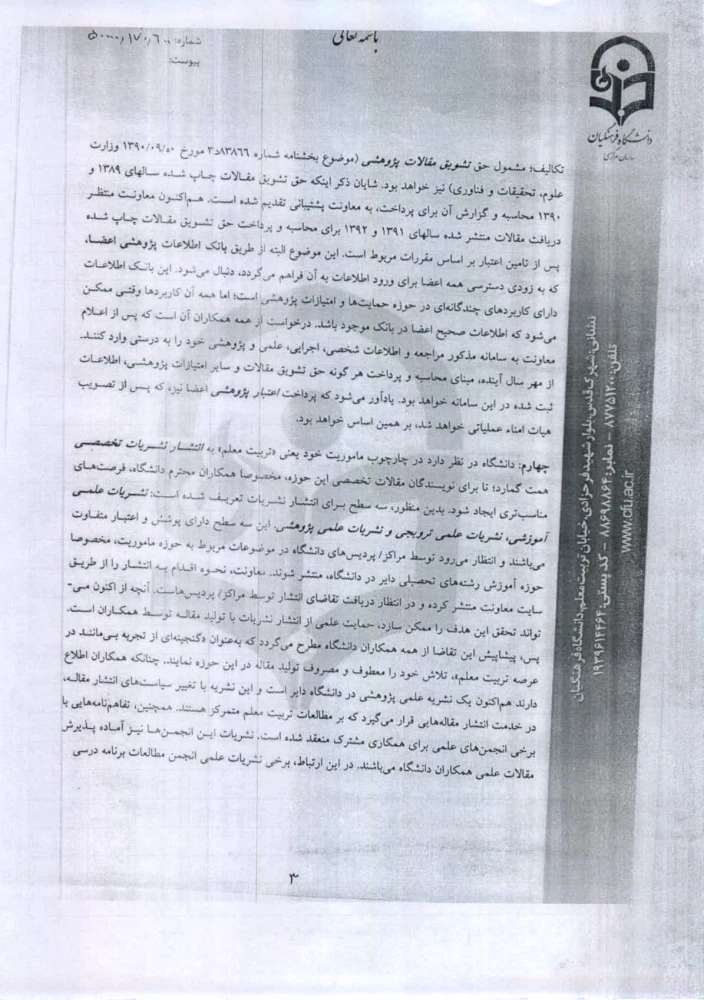 باسمه تعالی
شماره: ۵۰۰۰۰/۱۷۰/۶۰۰
پیوست:
دانشگاه فرهنگیان
سازمان مرکزی
تکالیف؛ مشمول حق تشویق مقالات پژوهشی (موضوع بخشنامه شماره مورخ ۱۳۹۰/۰۹/۵۰ وزارت
علوم، تحقیقات و فناوری) نیز خواهد بود. شایان ذکر اینکه حق تشویق مقالات چاپ شده سالهای ۱۳۸۹ و
۱۳۹۰ محاسبه و گزارش آن برای پرداخت، به معاونت پشتیبانی تقدیم شده است. هم‌اکنون معاونت منتظر
دریافت مقالات منتشر شده سالهای ۱۳۹۱ و ۱۳۹۲ برای محاسبه و پرداخت حق تشویق مقالات چاپ شده
پس از تامین اعتبار بر اساس مقررات مربوط است. این موضوع البته از طریق بانک اطلاعات پژوهشی اعضا،
که به زودی دسترسی همه اعضا برای ورود اطلاعات به آن فراهم می‌گردد، دنبال می‌شود. این بانک اطلاعات
دارای کاربردهای چندگانه‌ای در حوزه حمایت‌ها و امتیازات پژوهشی است؛ اما همه آن کاربردها وقتی ممکن
می‌شود که اطلاعات صحیح اعضا در بانک موجود باشد. درخواست از همه همکاران آن است که پس از اعلام
معاونت به سامانه مذکور مراجعه و اطلاعات شخصی، اجرایی، علمی و پژوهشی خود را به درستی وارد کنند.
از مهر سال آینده، مبنای محاسبه و پرداخت هر گونه حق تشویق مقالات و سایر امتیازات پژوهشی، اطلاعات
ثبت شده در این سامانه خواهد بود. یادآور می‌شود که پرداخت اعتبار پژوهشی اعضا نیز، که پس از تصویب
هیات امناء عملیاتی خواهد شد، بر همین اساس خواهد بود.
چهارم: دانشگاه در نظر دارد در چارچوب ماموریت خود یعنی «تربیت معلم» به انتشار نشریات تخصصی
همت گمارد؛ تا برای نویسندگان مقالات تخصصی این حوزه، مخصوصا همکاران محترم دانشگاه، فرصت‌های
مناسب‌تری ایجاد شود. بدین منظور، سه سطح برای انتشار نشریات تعریف شده است: نشریات علمی
آموزشی، نشریات علمی ترویجی و نشریات علمی پژوهشی. این سه سطح دارای پوشش و اعتبار متفاوت
می‌باشند و انتظار می‌رود توسط مراکز/ پردیس‌های دانشگاه در موضوعات مربوط به حوزه ماموریت، مخصوصا
حوزه آموزش رشته‌های تحصیلی دایر در دانشگاه، منتشر شوند. معاونت، نحوه اقدام به انتشار را از طریق
سایت معاونت منتشر کرده و در انتظار دریافت تقاضای انتشار توسط مراکز/ پردیس‌هاست. آنچه از اکنون می-
تواند تحقق این هدف را ممکن سازد، حمایت علمی از انتشار نشریات با تولید مقاله توسط همکاران است.
پس، پیشاپیش این تقاضا از همه همکاران دانشگاه مطرح می‌گردد که به‌عنوان «گنجینه‌ای از تجربه بی‌مانند در
عرصه تربیت معلم»، تلاش خود را معطوف و مصروف تولید مقاله در این حوزه نمایند. چنانکه همکاران اطلاع
دارند هم‌اکنون یک نشریه علمی پژوهشی در دانشگاه دایر است و این نشریه با تغییر سیاست‌های انتشار مقاله،
در خدمت انتشار مقاله‌هایی قرار می‌گیرد که بر مطالعات تربیت معلم متمرکز هستند. همچنین، تفاهم‌نامه‌هایی با
برخی انجمن‌های علمی برای همکاری مشترک منعقد شده است. نشریات این انجمن‌ها نیز آماده پذیرش
مقالات علمی همکاران دانشگاه می‌باشند. در این ارتباط، برخی نشریات علمی انجمن مطالعات برنامه درسی
۳
نشانی: شهرک قدس، بلوار شهید فرحزادی، خیابان تربیت معلم، دانشگاه فرهنگیان
تلفن: ۸۷۷۵۱۲۰۰ – نمابر: ۸۸۶۹۸۸۶۴ – کد پستی: ۱۹۳۹۶۱۴۴۶۴
www.cfu.ac.ir